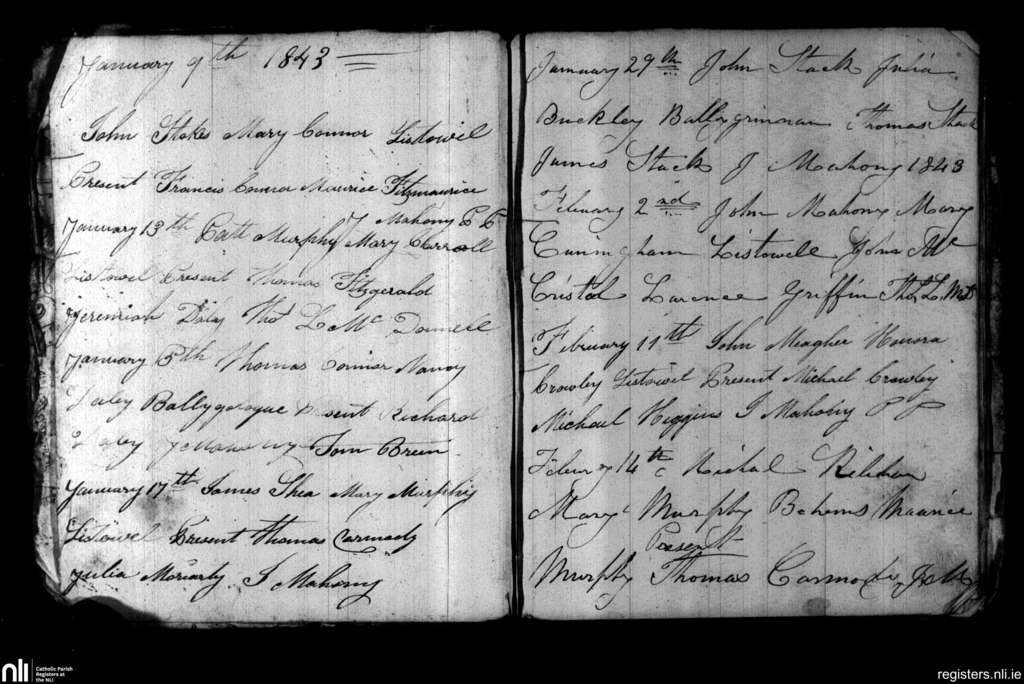 January 9th 1843
John Stokes Mary Connor Listowel
Present Francis Connor Maurice Fitzmaurice
J Mahony P P
January 13th Patt Murphy Mary Carroll
Listowel Present Thomas Fitzgerald
Jeremiah Daly Thos L Mc Donnell
January 15th Thomas Connor Nancy
Daley Present Richard
Daley J Mahony Tom Breen
January 17th James Shea Mary Murphy
Listowel Present Thomas Carmody
Julia Moriarty J Mahony
January 29th John Stack Julia
Buckley Ballygrinnan Thomas Stack
James Stack J Mahony 1843
February 2nd John Mahony Mary
Cuningham Listowell John Mc
Larence Griffin Thos L Mc
February 11th John Meagher Honora
Crowley Listowel Present Michael Crowley
Michael Higgins J Mahony P P
14th
Mary Murphy Behems Maurice
Present
Murphy Thomas Carmody J M
nli
Catholic Parish
Registers at
the NLI
registers.nli.ie